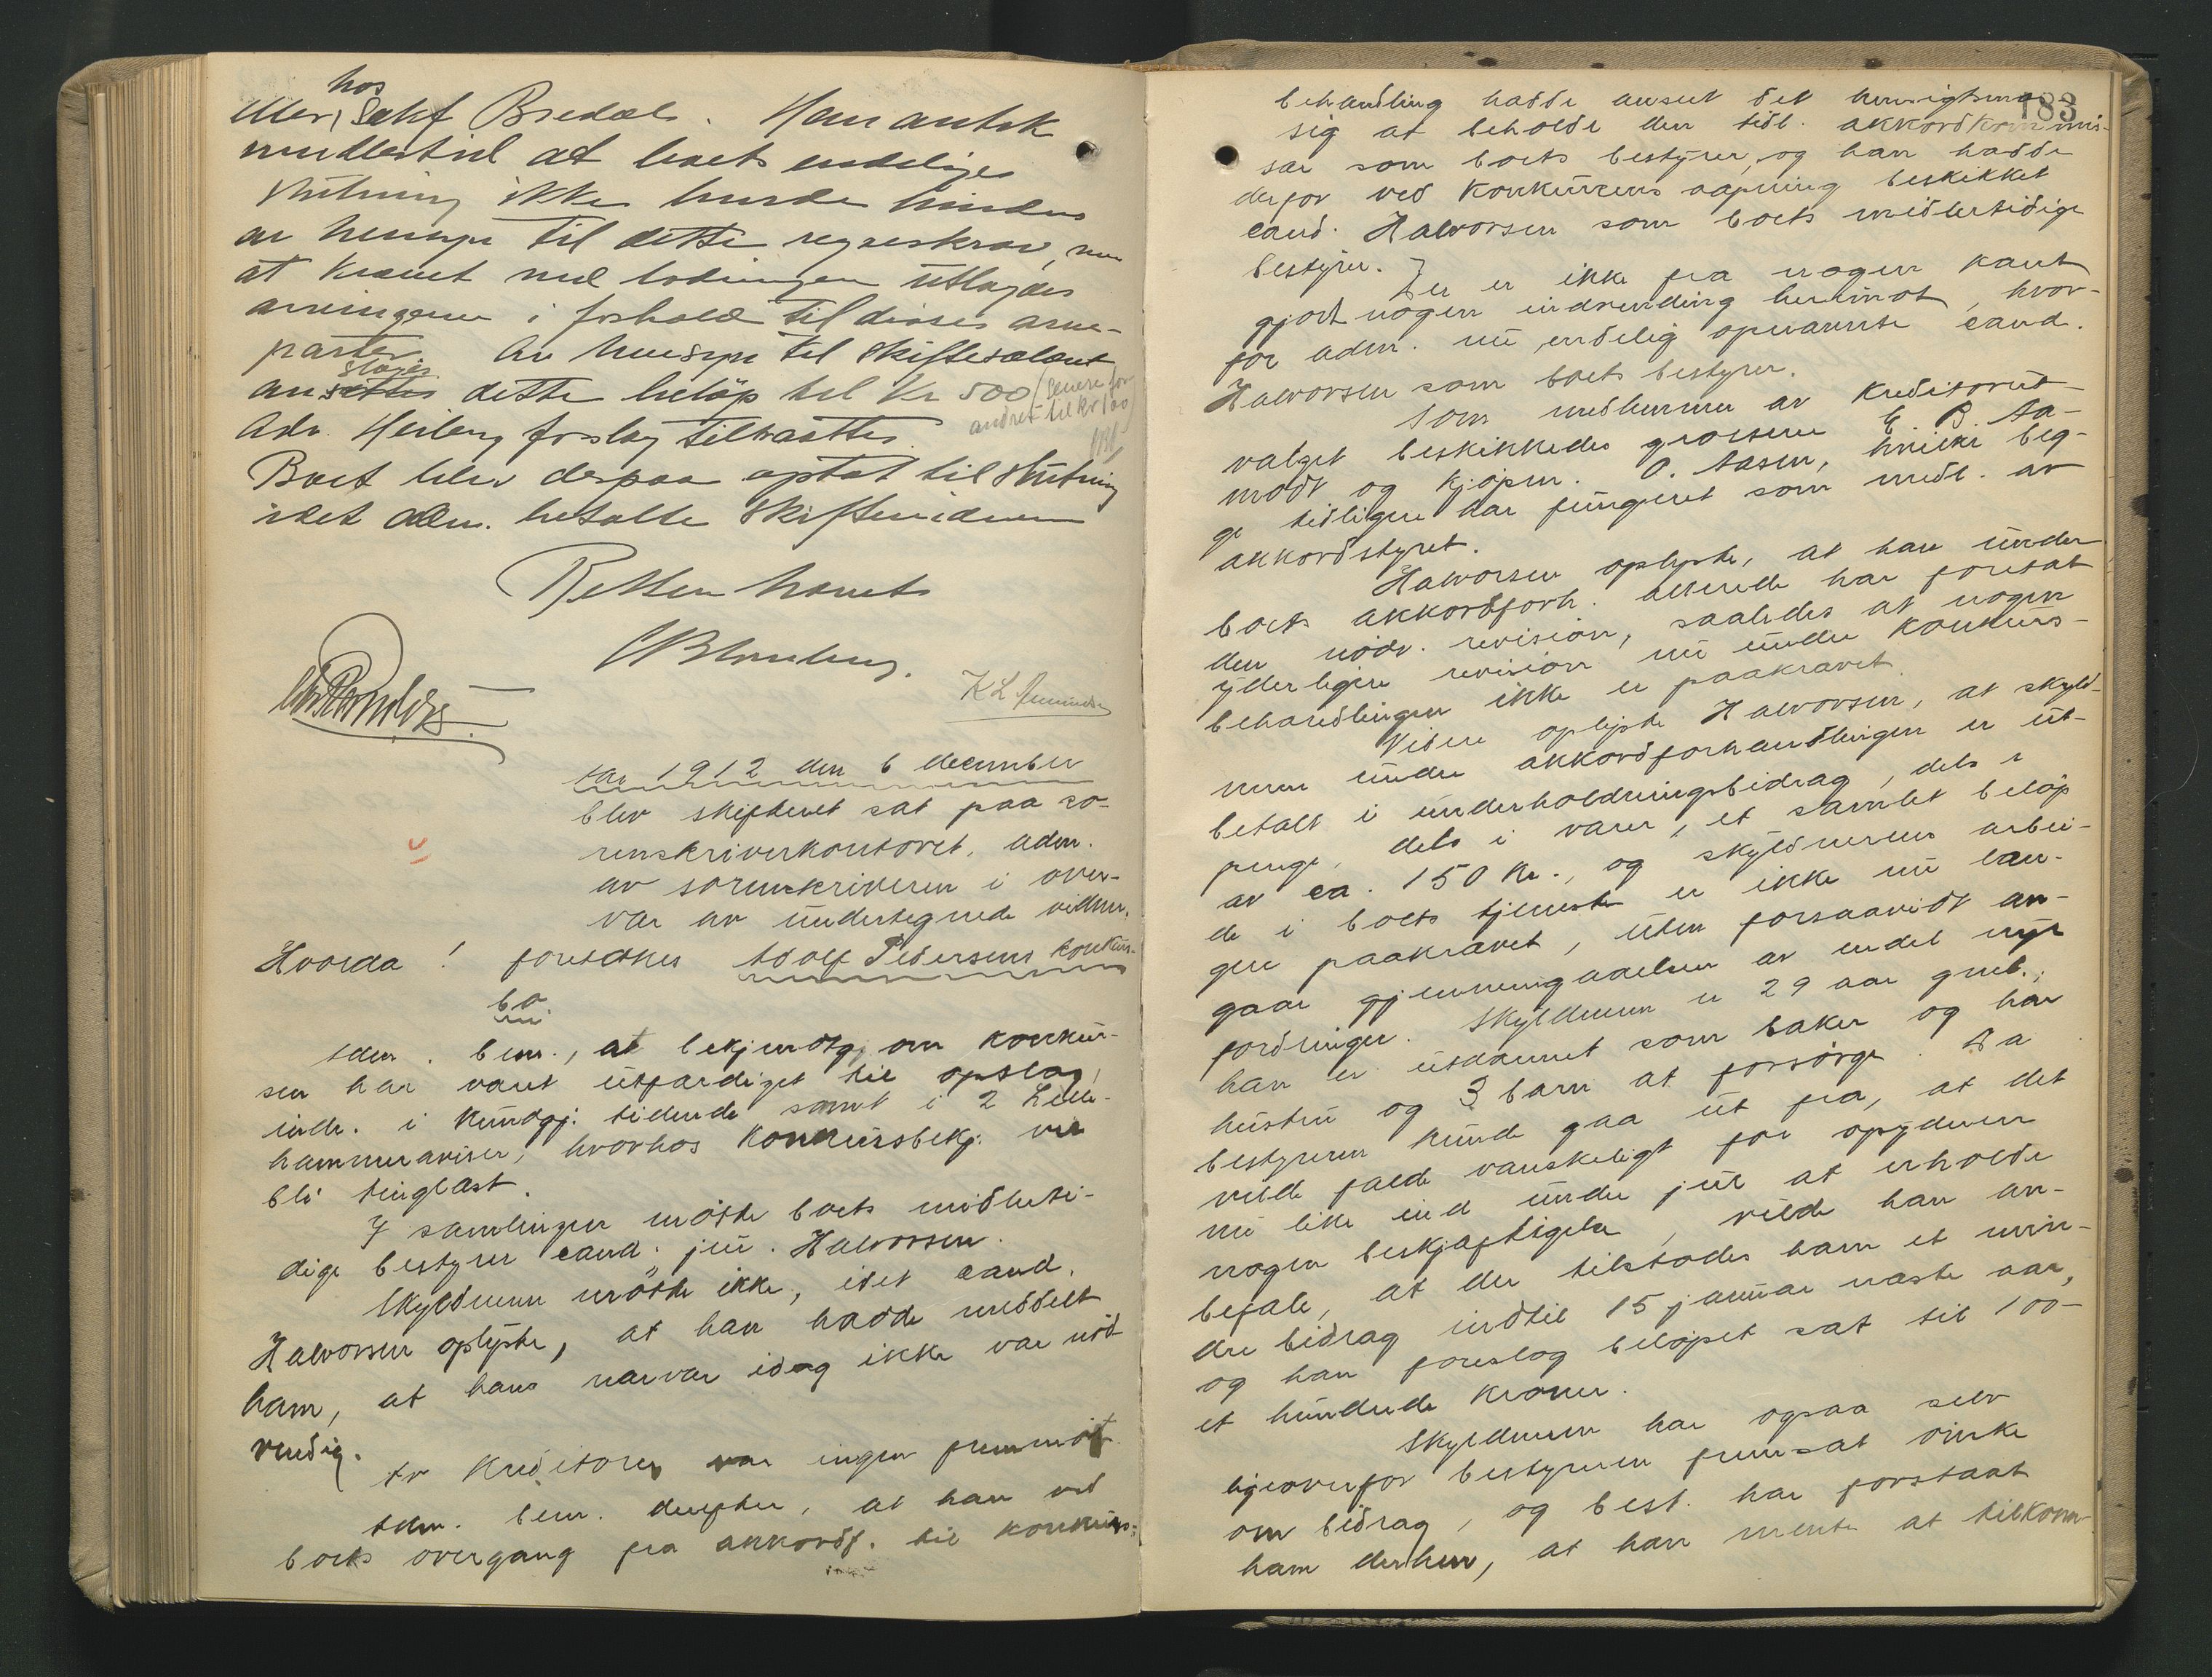 hos
eller, Sakf Bredals. Han antok
imidlertid at boets endelige
slutning ikke burde hindres
av hensyn til dette regreskrav, men
at kravet med lodningen utlagdes
arvingerne i forhold til disses arve-
parter. Av hensyn til skiftesalæret
ansættes dette beløp til Kr 500 (senere for
sloges
andret til kr 100)
Adv. Heiberg forslag tiltraattes.
Boet blev derpaa optat til slutning
idet adm. betalte skiftevidnerne
Retten hævet
K L Amundsen
Aar 1912 den 6 december
blev skifteret sat paa so-
renskriverkontoret, adm.
av sorenskriveren i over-
vær av undertegnede vidner.
Hvorda! foretokes Adolf Pedersens konkurs-
bo.
Adm. bem., at bekjendtg. om konkur-
sen har været utfærdiget til opslag,
indr. i Kundgj. tidende samt i 2 Lille-
hammeraviser, hvorhos konkursbekj. vil
bli tinglæst.
I samlingen møtte boets midlerti-
dige bestyrer cand. jur. Halvorsen.
Skyldneren møtte ikke, idet cand.
Halvorsen oplyste, at han hadde meddelt
ham, at hans nærvær idag ikke var nød-
vendig.
Av kreditorer var ingen fremmøtt.
Adm. bem. derefter, at han ved
boets overgang fra akkordf. til konkurs-
183
behandling hadde anseet det hensigtsmæs-
sig at beholde den tidl. akkordkommis-
sær som boets bestyrer, og han hadde
derfor ved konkursens aapning beskikket
cand. Halvorsen som boets midlertidige
bestyrer.
Der er ikke fra nogen kant
gjort nogen indvending herimot, hvor-
for adm. nu endelig opnævnte cand.
Halvorsen som boets bestyrer.
Som medlemmer av kreditorut-
valget beskikkedes grosserer E. B. Aa-
modt og kjøpm. O. Aasen, hvilke beg-
ge tidligere har fungeret som medl. av
akkordstyret.
Halvorsen oplyste, at han under
boets akkordforh. allerede har foretat
den nødv. revision, saaledes at nogen
yderligere revision nu under konkurs-
behandlingen ikke er paakrævet.
Videre oplyste Halvorsen, at skyld-
neren under akkordforhandlingen er ut-
betalt i underholdningsbidrag, dels i
penge, dels i varer, et samlet beløp
av ca. 150 kr., og skyldnerens arbei-
de i boets tjeneste er ikke nu læn-
gere paakrævet, uten forsaavidt an-
gaar gjennemgaaelsen av endel nye
fordringer. Skyldneren er 29 aar gml.;
han er utdannet som baker og har
hustru og 3 barn at forsørge. Da
bestyreren kunde gaa ut fra, at det
vilde falde vanskeligt for opgiveren
nu like ind under jul at erholde
nogen beskjæftigelse, vilde han an-
befale, at der tilstodes ham et min-
dre bidrag indtil 15 januar næste aar,
og han foreslog beløpet sat til 100-
et hundrede kroner.
Skyldneren har ogsaa selv
likeoverfor bestyreren fremsat ønske
om bidrag, og best. har forstaat
ham derhen, at han mente at tilkomme